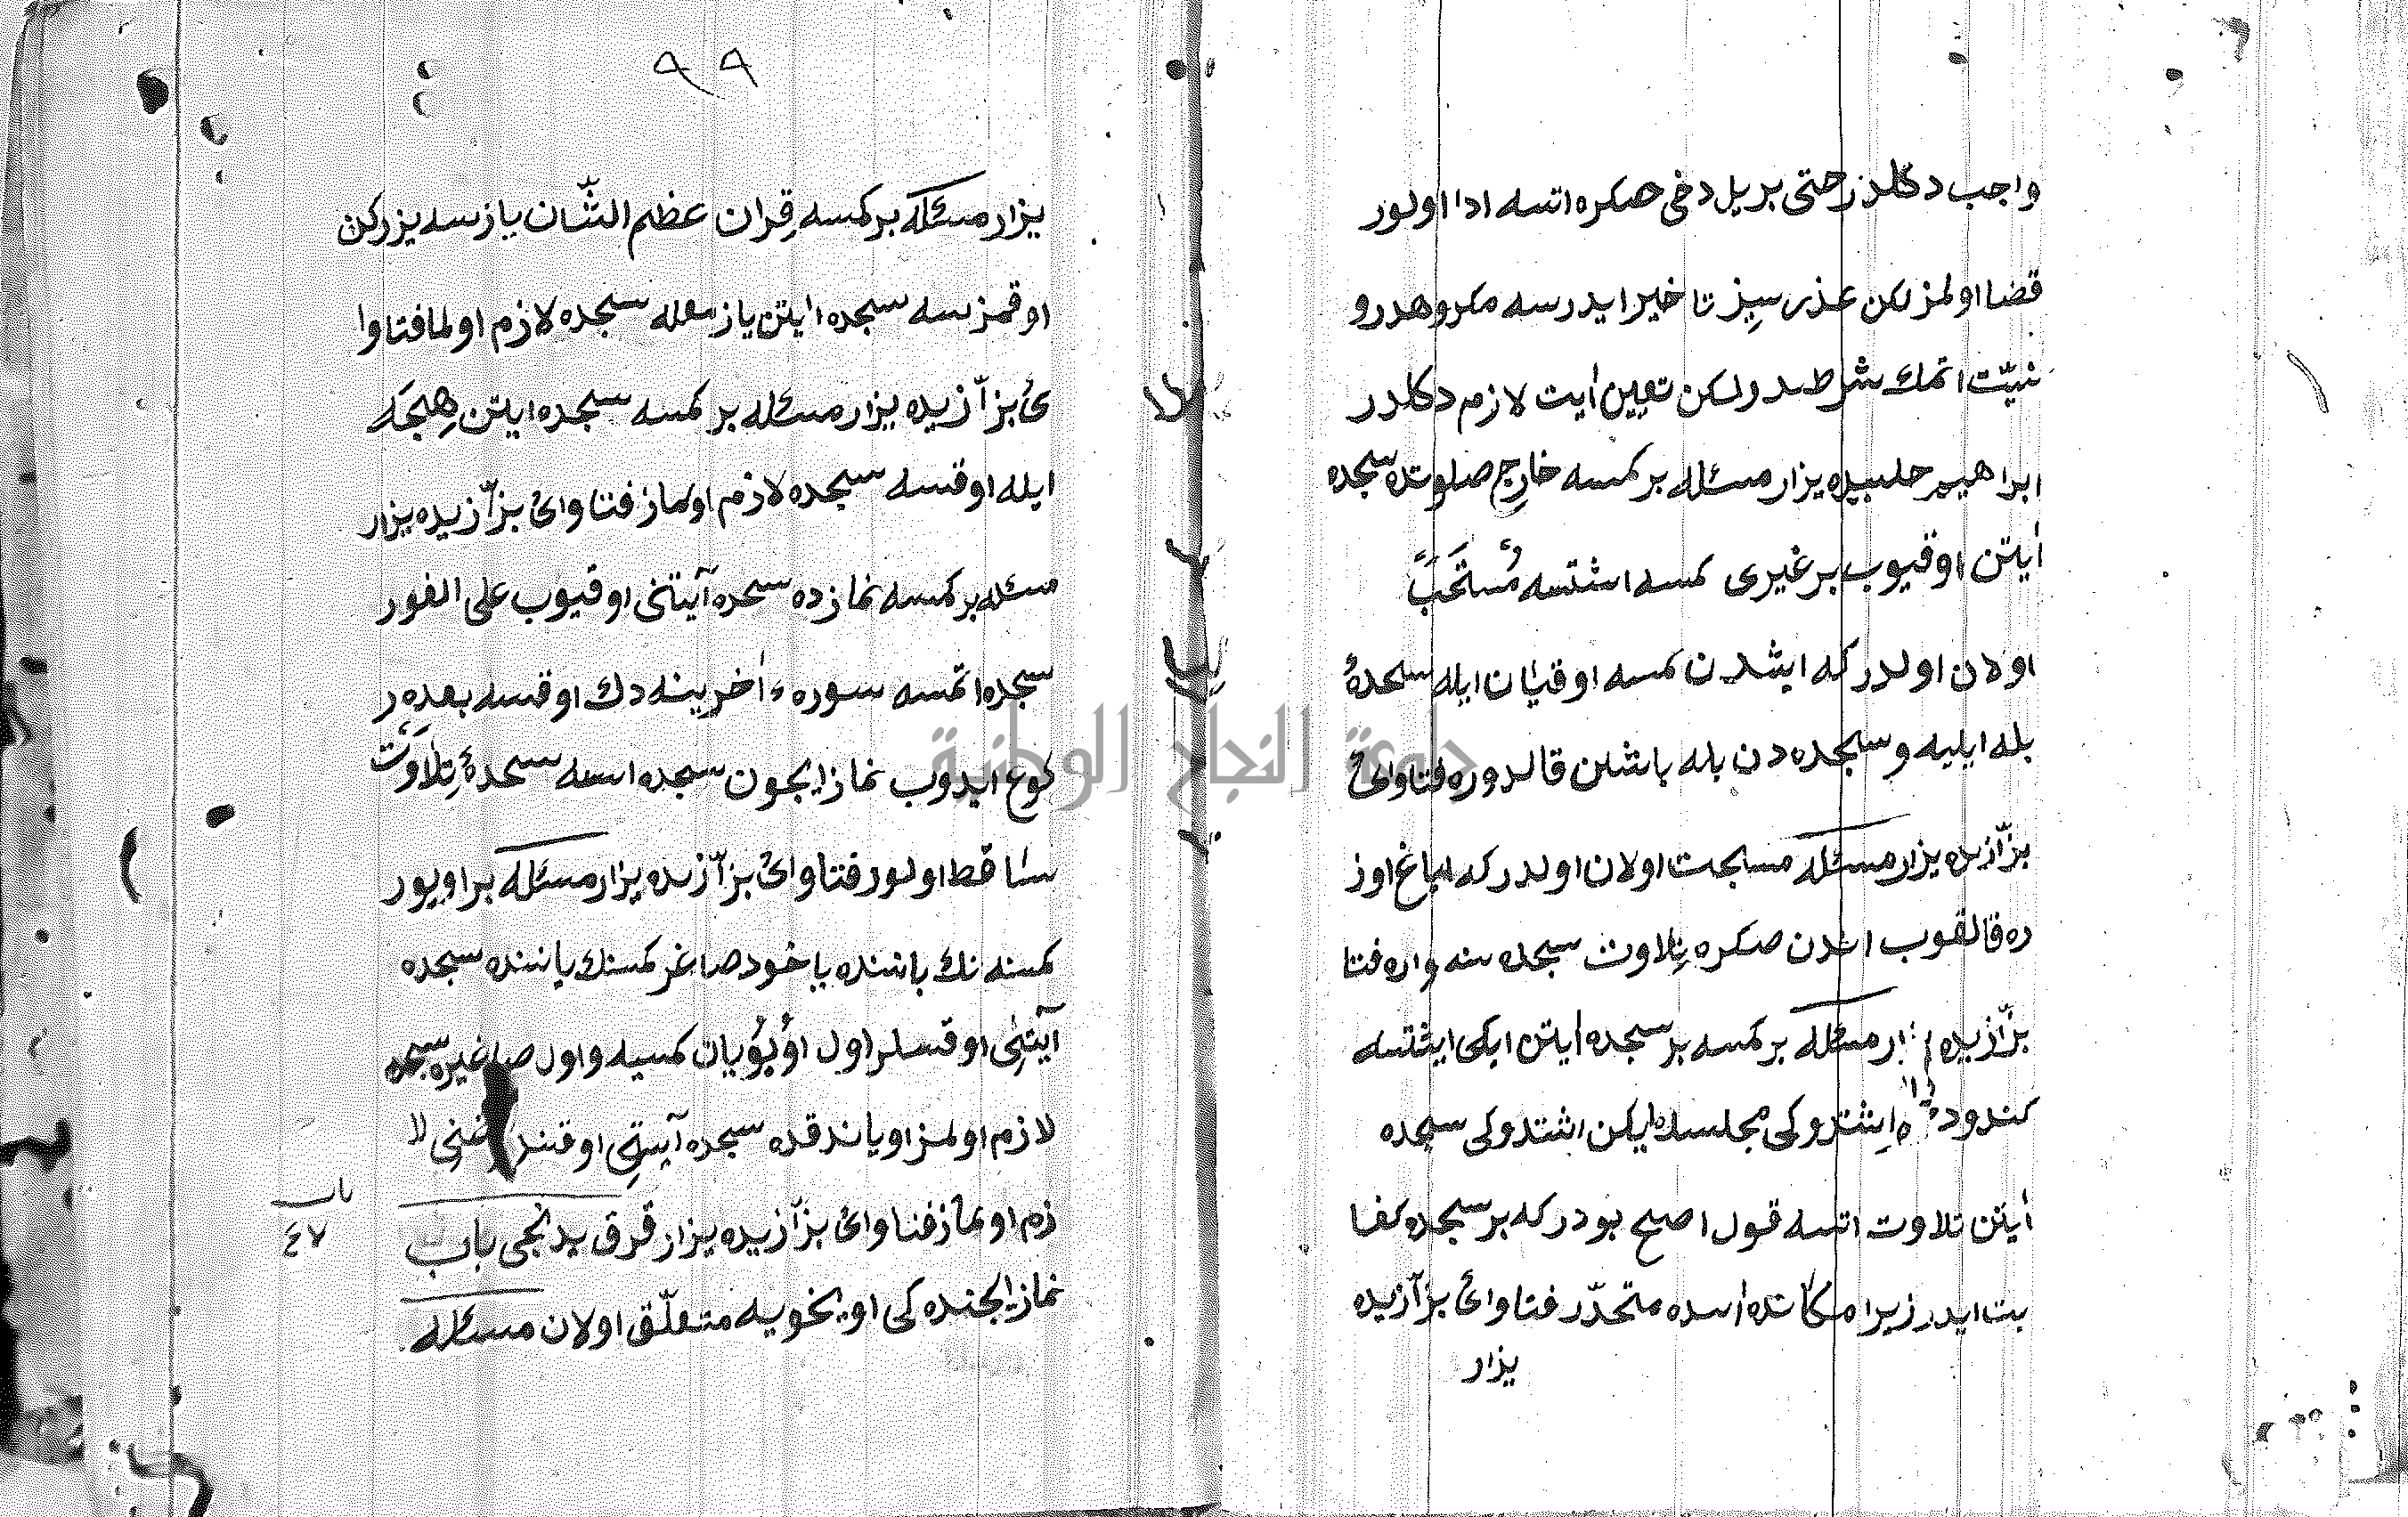 واجب دكلدر حتى بر يل دخى صكره اتسه ادا اولور
قضا اولمز لكن عذر سِيز تا خير ايدرسه مكروهدر و
نيّت اتمك شرطدر ولكن تعيين أيت لازم دكلدر
ابراهيم حلبيده يزار مسئله بر كمسه خارج صلوتده سجده
أيتن اوقيوب بر غيرى كمسه اشتسه مُستَحَبّ
اولان اولدر كه ايشدن كمسه اوقيان ايله سجدهٔ
بله ايليه و سجده دن بله باشن قالدوره فتاواىٔ
بزّازيده يزار مسئله مستحب اولان اولدر كه اياغ اوز
ره قالقوب اندن صكره تِلاوت سجده سنه واره فتا
بزّازيده يزار مسئله بر كمسه بر سجده أيتن ايكى ايشتسه
كندود اِشتدوكى مجلسده ليكن اشتدوكى سجده
أيتن تلاوت اتسه قول اصح بودر كه بر سجده كفا
يت ايدر زيرا مكانده اسده متحدّر فتاواىٔ بزّازيده
يزار
٩٩
يزار مسئله بر كمسه قِران عظم الشّان يازسه يزركن
اوقمزسه سجده ايتن يازمغله سجده لازم اولما فتاوا
ىٔ بزّازيده يزار مسئله بر كمسه سجده ايتن هِيجَه
ايله اوقسه سجده لازم اولماز فتاواىٔ بزّازيده يزار
مسئله بر كمسه نمازده سجده آيتنى اوقيوب على الفور
سجده اتمسه سوره ء أخرينه دك اوقسه بعده ر
كوع ايدوب نماز ايچون سجده اتسه سجدهٔ تِلاَوَت
ساقط اولور فتاواىٔ بزّازيده يزار مسئله بر اويور
كمسنه نك ياننده يا خود صاغر كمسنك ياننده سجده
آيتنِى اوقسلر اول اوُيوُيان كمسيه و اول صاغيره سجده
لازم اولمز اوياندقده سجده آيتنِى اوقند غنِى لا
زم اولماز فتاواىٔ بزّازيده يزار قرق يدنجى باب
باب
٤٧
نماز ايچنده كى اويخويه متعلّق اولان مسئله
جامعة النجاح الوطنية